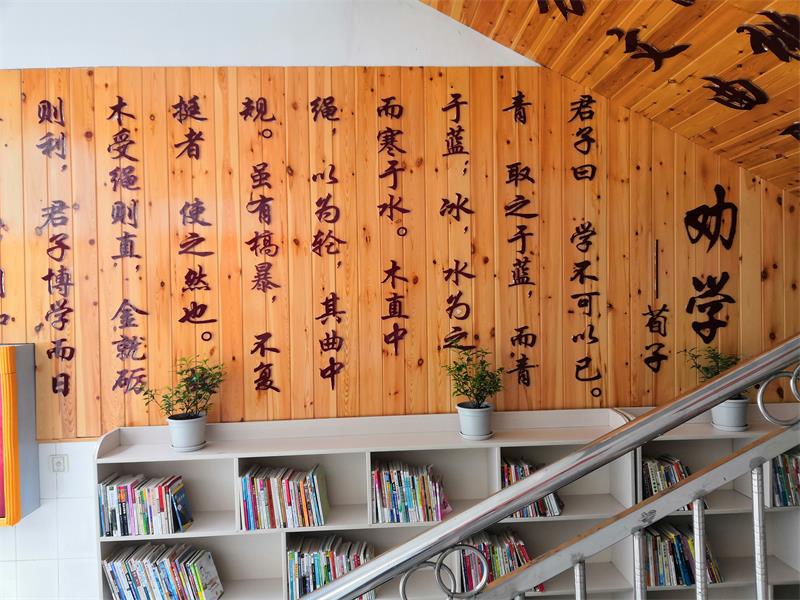 劝学
——荀子
君子曰 学不可以已。
青 取之于蓝，而青
于蓝，冰，水为之
而寒于水。木直中
绳，以为轮，其曲中
规。虽有槁暴，不复
挺者 使之然也。
木受绳则直，金就砺
则利，君子博学而日